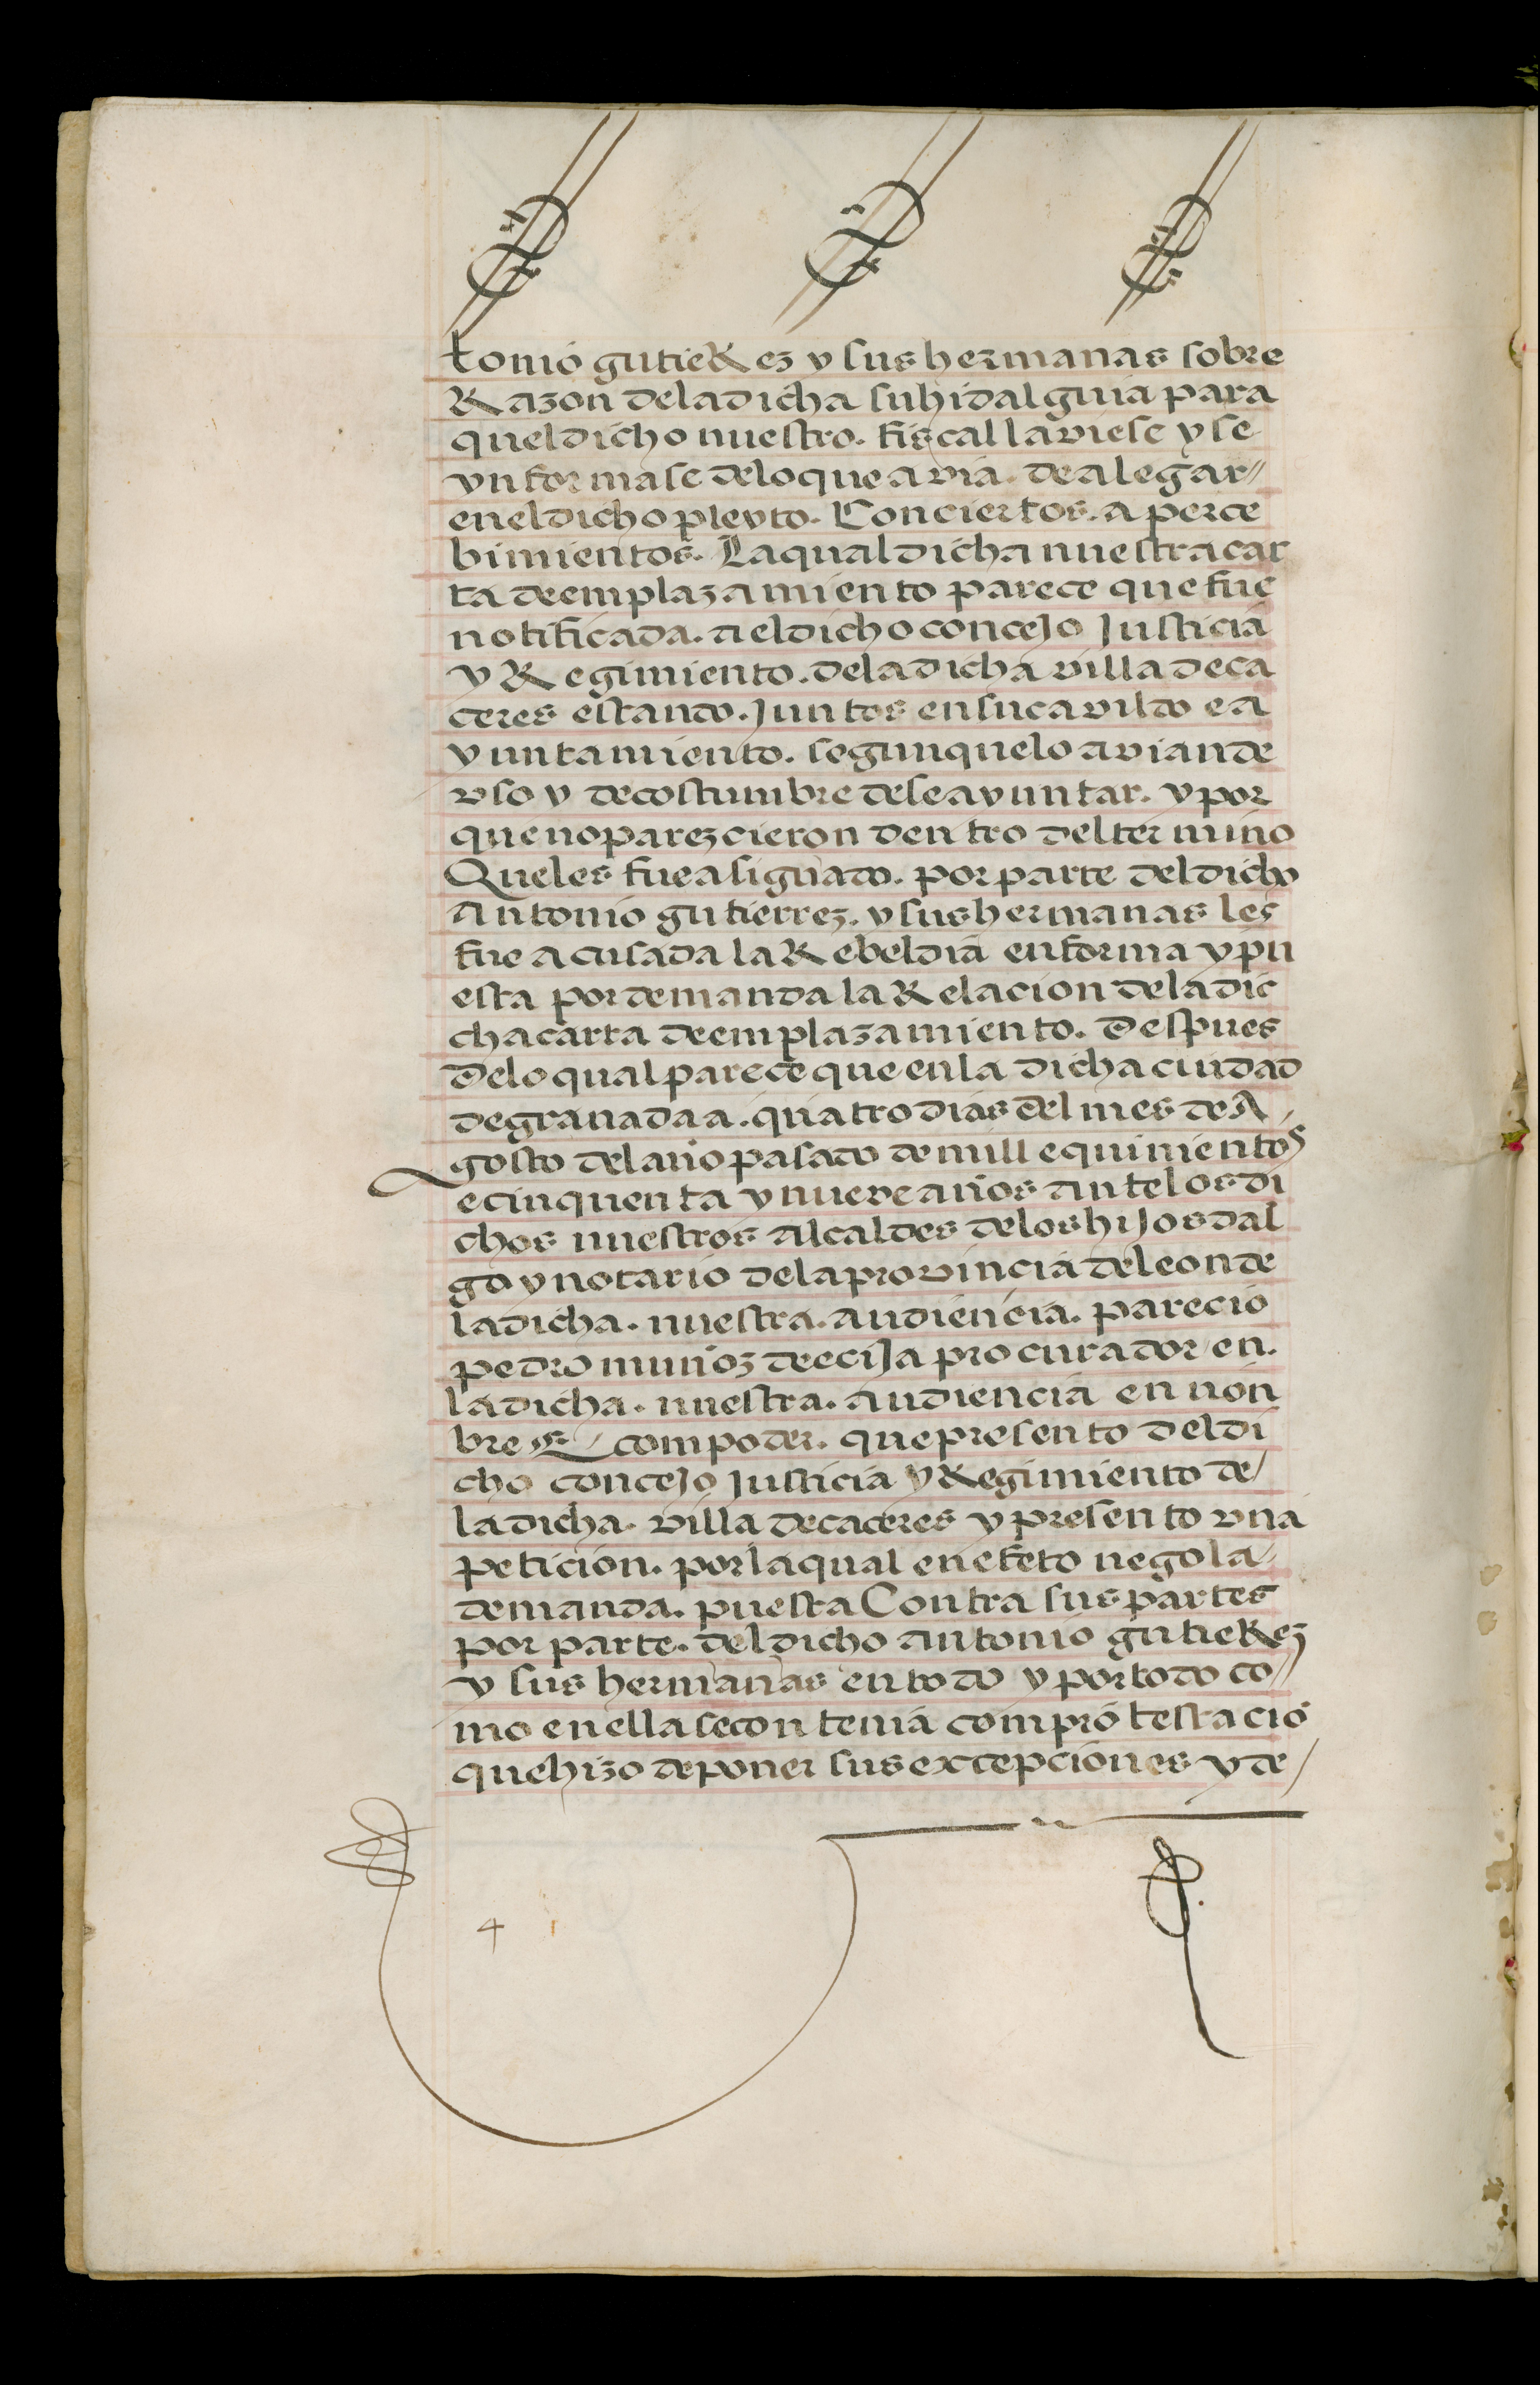 tonio gutieRez y sus hermanas sobre
Razon de la dicha su hidalguia para
quel dicho nuestro. fiscal la viese y se
ynformase de lo que avia. de alegar
en el dicho pleyto. Con ciertos. aperce
bimientos. La qual dicha nuestra car
ta de emplazamiento parece que fue
notificada. a el dicho concejo Justicia
y Regimiento. de la dicha villa de ca
ceres estando. Juntos en su cavildo e a
yuntamiento. segun que lo avian de
vso y de costumbre de se ayuntar. y por
que no parezcieron dentro del termino
Que les fue asignado. por parte del dicho
Antonio gutierrez. y sus hermanas les
fue acusada la Rebeldia en forma y pu
esta por demanda la Relacion de la dic
cha carta de emplazamiento. Despues
De lo qual parece que en la dicha ciudad
de granada a. quatro dias del mes de A
gosto del año pasado de mill e quinientos
e cinquenta y nueve años ante los di
chos nuestros Alcaldes de los hijos dal
go y notario de la provincia de leon de
la dicha. nuestra. audiencia. parecio
pedro muñoz de ecija procurador en.
la dicha. nuestra. audiencia en non
bre E com poder. que presento del di
cho concejo Justicia y Regimiento de
la dicha. villa de caceres y presento vna
peticion. por la qual en efeto nego la
demanda. puesta Contra sus partes
por parte. del dicho antonio gutieRez
y sus hermanas en todo y por todo co
mo en ella se contenia com protestacio
que hizo de poner sus excepciones y de